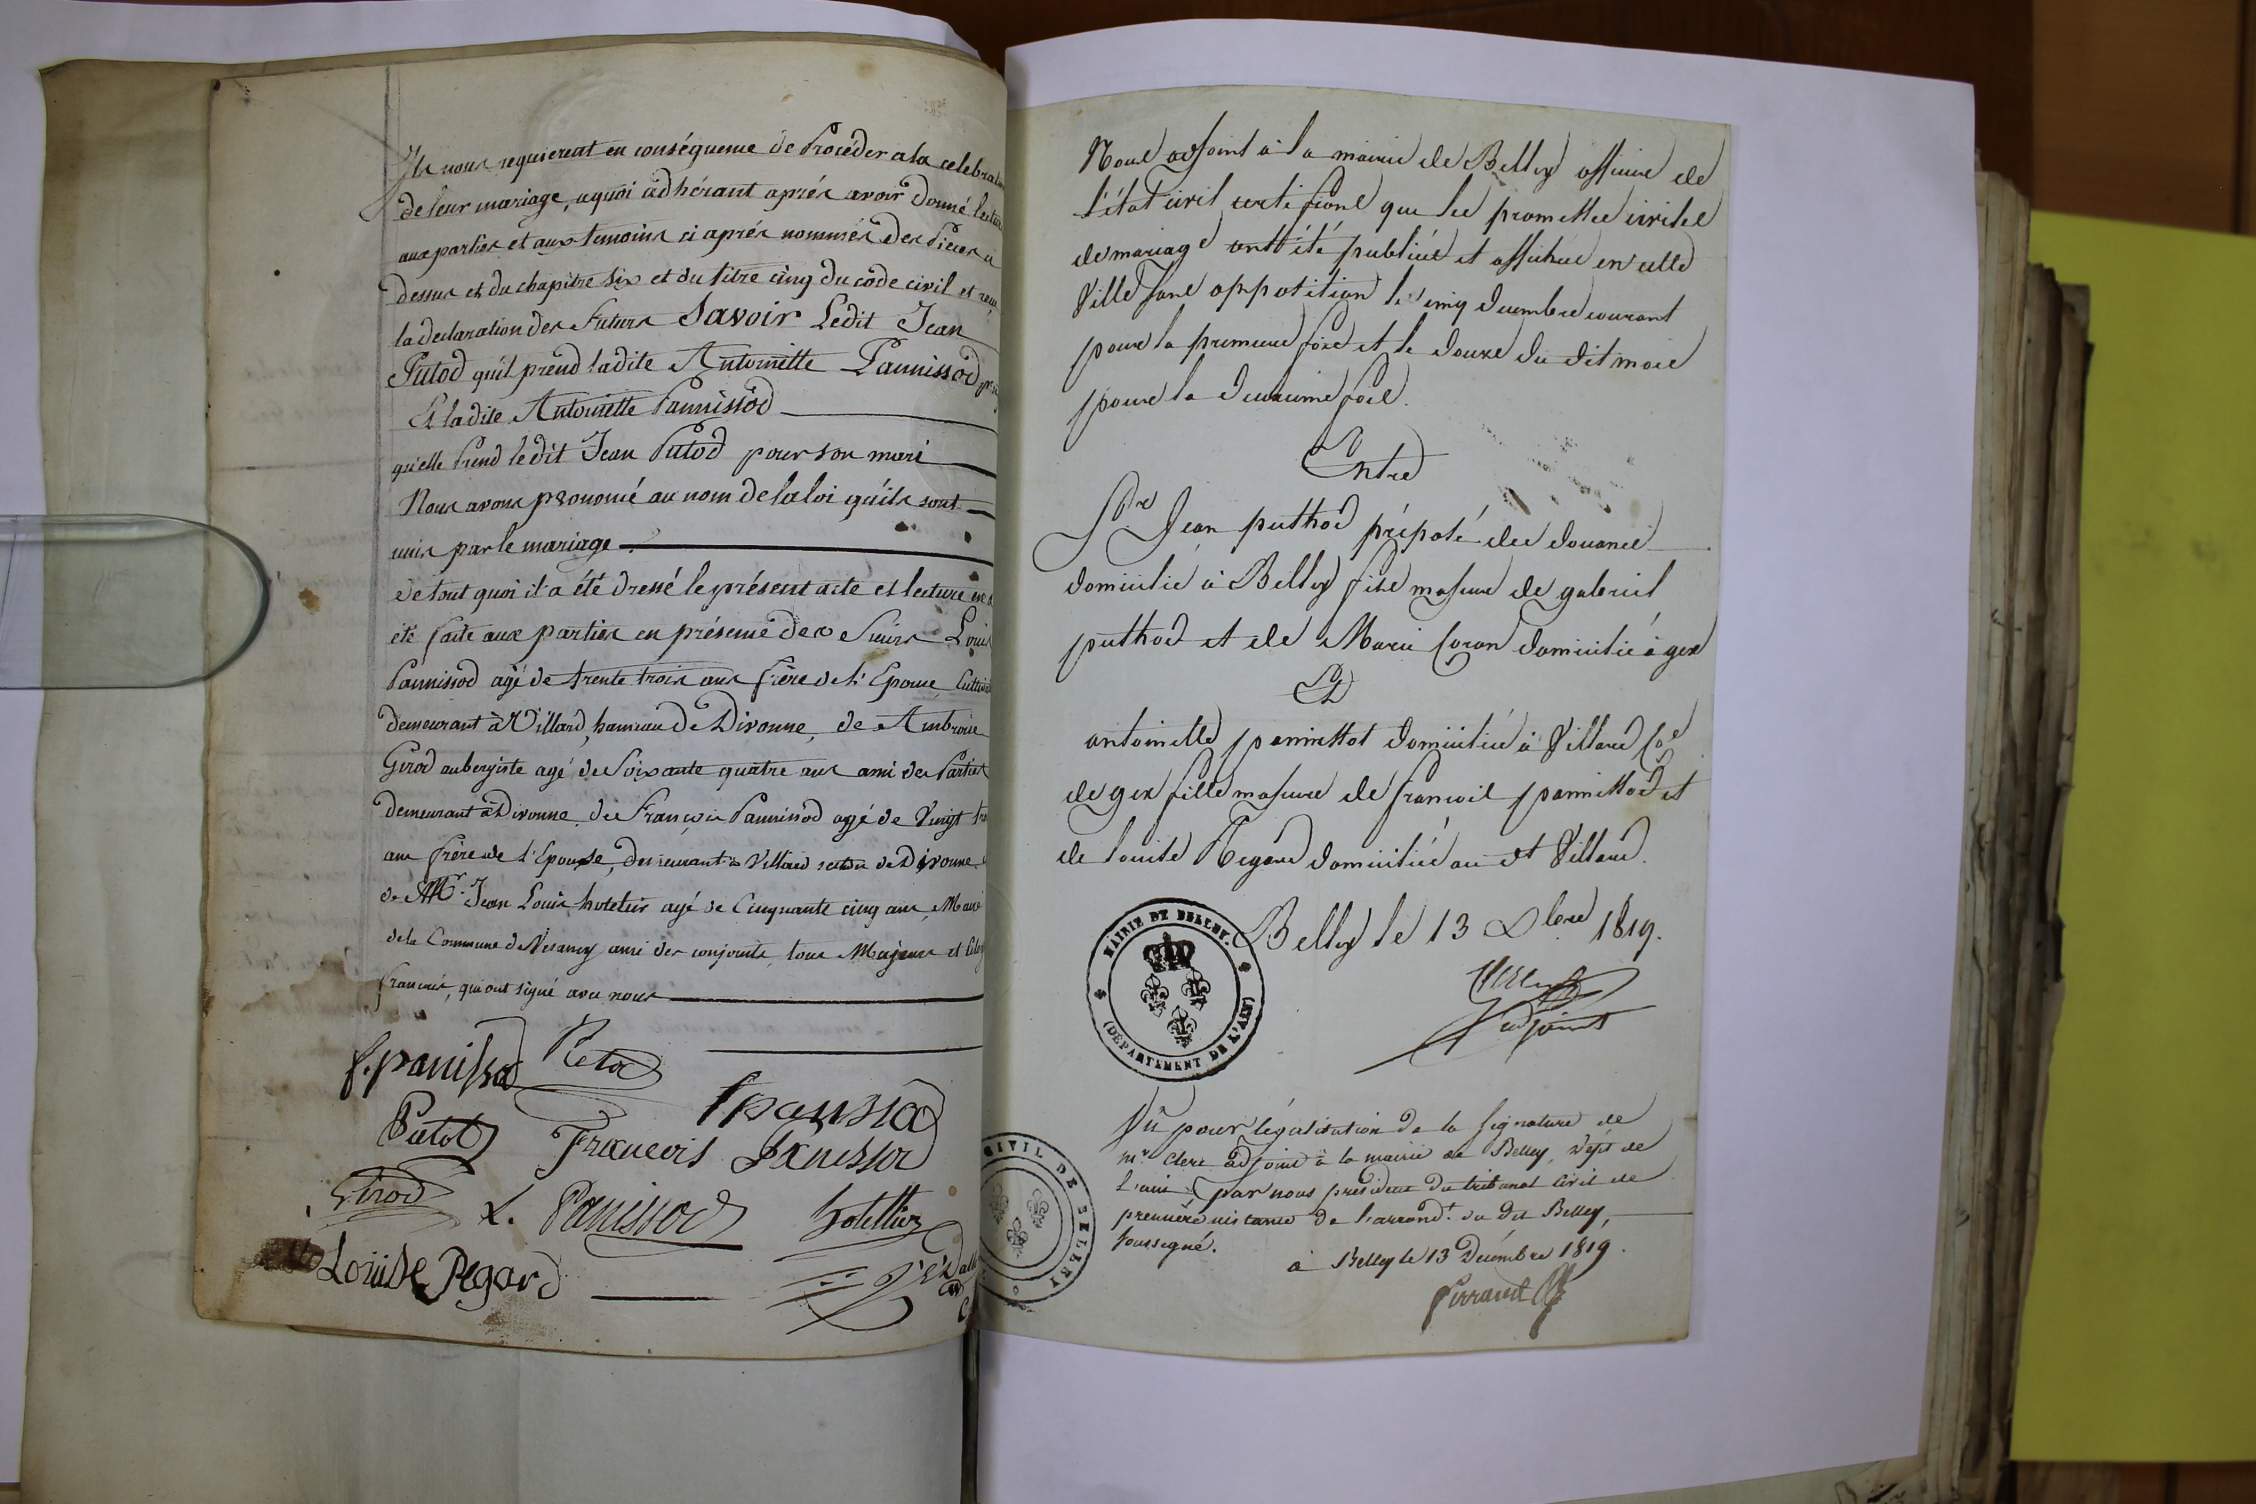 Ils nous requierent en conséquence de Procéder a la celebration
de leur mariage, aquoi adhérant aprés avoir Donné lecture
aux parties et aux temoins ci aprés nommés Des Pieces ci
dessus et du chapitre six et du titre cinq du côde civil et reçu
la declaration des Futurs Savoir Ledit Jean
Putod qu'il prend ladite Antoinette Pannissod
Et ladite Antoinette Pannissod
qu'elle Prend ledit Jean Putod pour son mari
Nous avons prononcé au nom de la loi qu'ils sont
unis par le mariage
De tout quoi il a été Dressé le présent acte et lecture en a
été faite aux parties en présence des Sieurs Louis
Pannissod agé de trente trois ans frère de l'Epouse Cultivateur
demeurant à Villard, hameau De Divonne, de Ambroise
Girod aubergiste agé de Soixante quatre ans ami des Parties
demeurant à Divonne de François Pannissod agé de Vingt
ans frère de l'Epouse, demeurant à Villard section de Divonne
de Mr. Jean Louis hotelier agé de Cinquante cinq ans, Maire
de la Commune de Vesancy ami des conjoints, tous Majeurs et
français, qui ont signé avec nous
f. panissod Putod
panissod
Putot François Panissod
Girod L. Panissod hotellier
Louïse Regard
Nous adjoint à la mairie de Belley officier de
l'état civil certifions que les promesses civiles
de mariage ont été publiées et affichées en cette
Ville sans opposition le cinq decembre courant
pour la premiere fois et le douze du dit mois
pour la deuxieme fois.
Entre
Sr Jean puthod préposé des douanes
domicilié à Belley fils majeur de gabriel
puthod et de Marie Coran domiciliés à gex
Et
antoinette pannissot domiciliée à Villard Cne
de gex fille majeure de françois pannissod et
de louise Regard domiciliés au dt Villard.
Belley le 13 Xbre 1819.
adjoint
MAIRIE DE BELLEY.
(DÉPARTEMENT DE L'AIN)
Vû pour légalisation de la signature de
mr. Clerc adjoint à la mairie de Belley, dépt de
l'ain par nous président du tribunal civil de
première instance de l'arrondt. du dit Belley,
soussigné.
à Belley le 13 Décembre 1819.
Perraud
CIVIL DE BELLEY